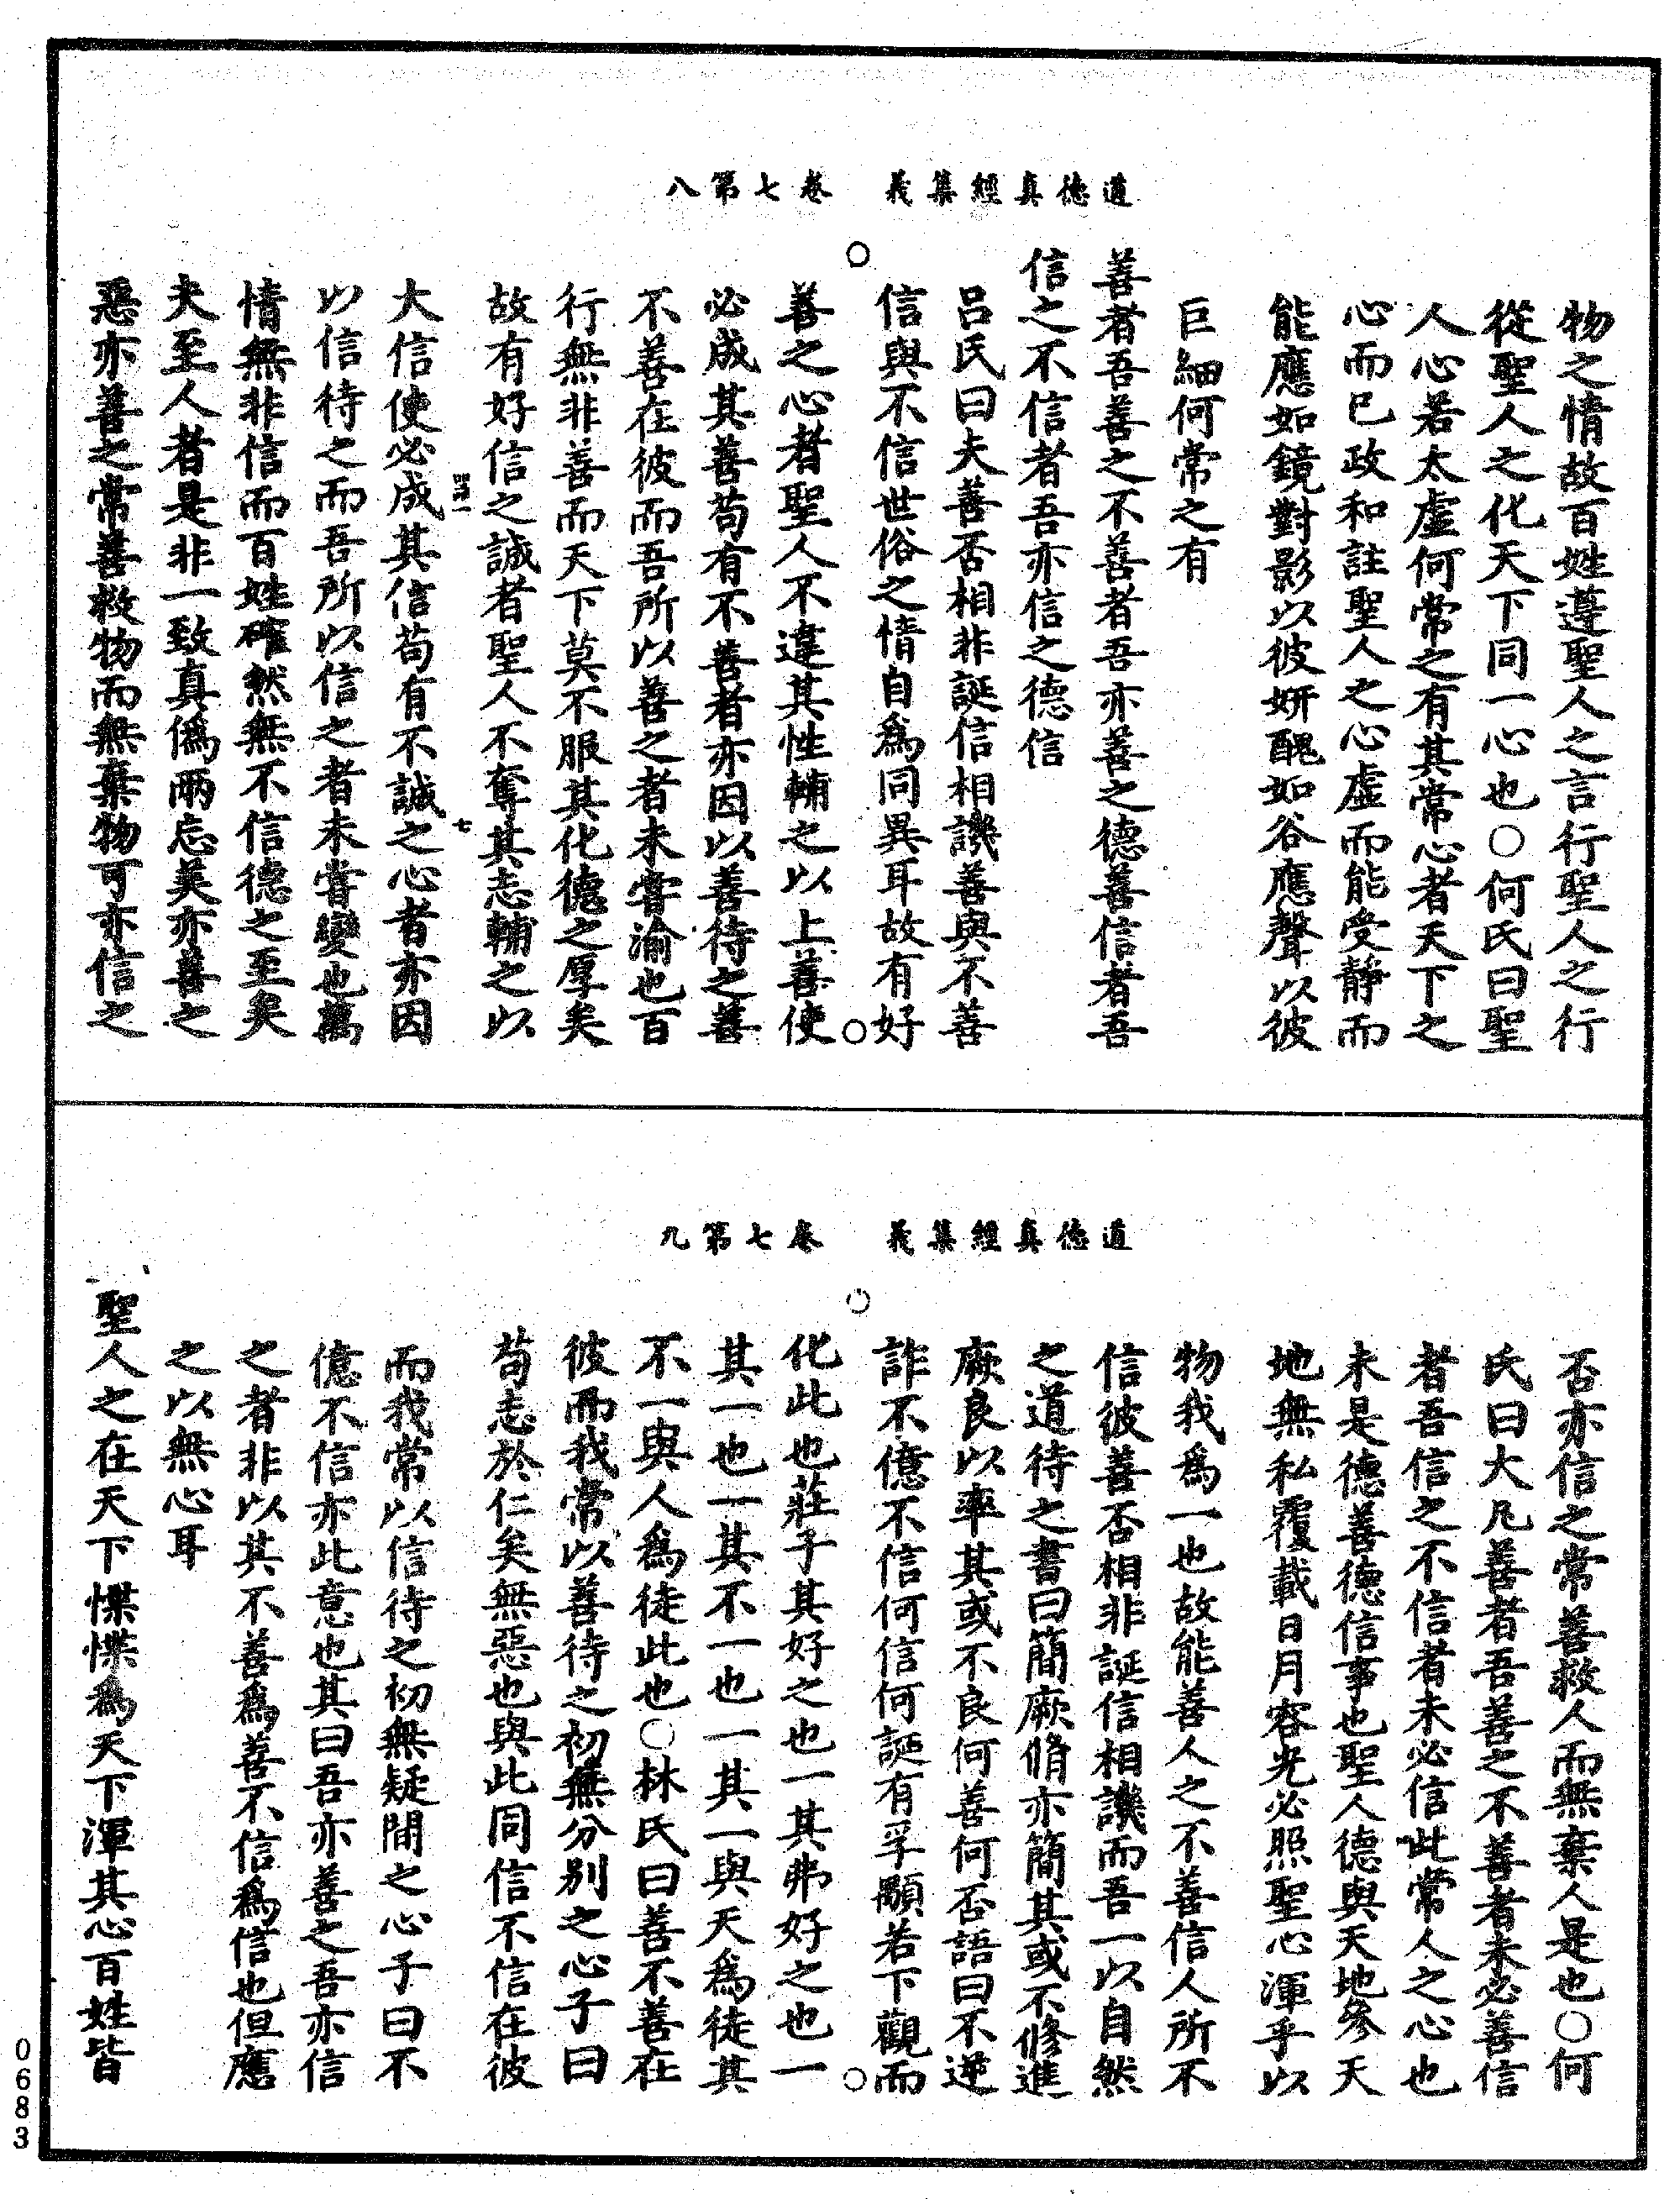 道德真經集義　卷七第八
物之情故百姓遵聖人之言行聖人之行
從聖人之化天下同一心也○何氏曰聖
人心若太虛何常之有其常心者天下之
心而已政和註聖人之心虛而能受靜而
能應如鏡對影以彼妍醜如谷應聲以彼
巨細何常之有
善者吾善之不善者吾亦善之德善信者吾
信之不信者吾亦信之德信
呂氏曰夫善否相非誕信相譏善與不善
信與不信世俗之情自爲同異耳故有好
善之心者聖人不違其性輔之以上善使
必成其善苟有不善者亦因以善待之善
不善在彼而吾所以善之者未嘗渝也百
行無非善而天下莫不服其化德之厚矣
故有好信之誠者聖人不奪其志輔之以
大信使必成其信苟有不誠之心者亦因
以信待之而吾所以信之者未嘗變也萬
情無非信而百姓確然無不信德之至矣
夫至人者是非一致真僞兩忘美亦善之
惡亦善之常善救物而無棄物可亦信之
道德真經集義　卷七第九
否亦信之常善救人而無棄人是也○何
氏曰大凡善者吾善之不善者未必善信
者吾信之不信者未必信此常人之心也
未是德善德信事也聖人德與天地參天
地無私覆載日月容光必照聖心渾乎以
物我爲一也故能善人之不善信人所不
信彼善否相非誕信相譏而吾一以自然
之道待之書曰簡厥脩亦簡其或不修進
厥良以率其或不良何善何否語曰不逆
詐不億不信何信何誕有孚顒若下觀而
化此也莊子其好之也一其弗好之也一
其一也一其不一也一其一與天爲徒其
不一與人爲徒此也○林氏曰善不善在
彼而我常以善待之初無分別之心子曰
苟志於仁矣無惡也與此同信不信在彼
而我常以信待之初無疑間之心子曰不
億不信亦此意也其曰吾亦善之吾亦信
之者非以其不善爲善不信爲信也但應
之以無心耳
聖人之在天下惵惵爲天下渾其心百姓皆
0683